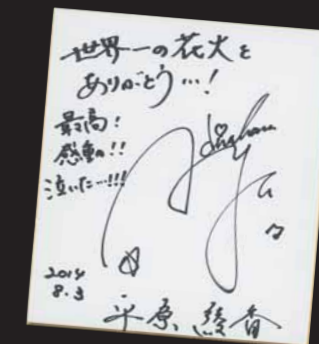 世界一の花火を
ありがとう…!
最高!
感動!!
泣いた…!!!
2014
8.3
平原綾香